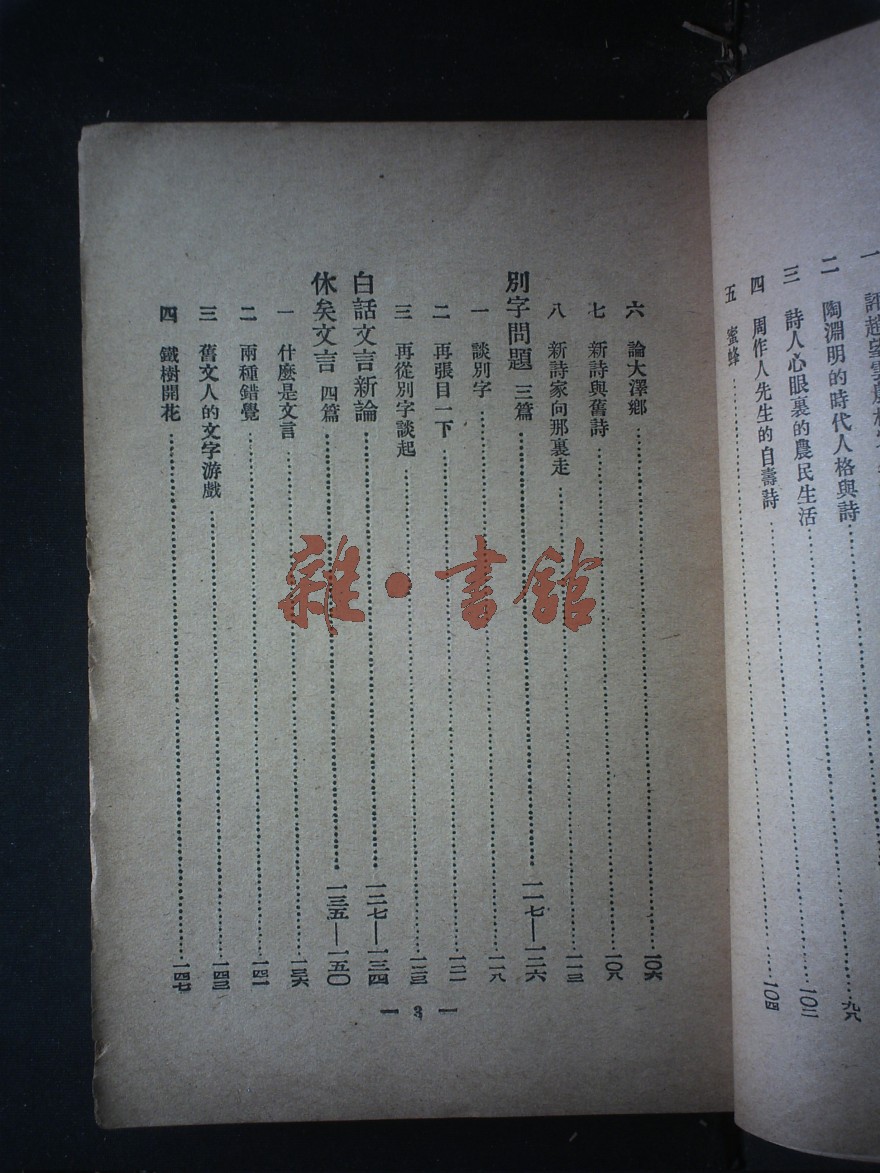 二 陶淵明的時代人格與詩……九八
三 詩人心眼裏的農民生活……一〇二
四 周作人先生的自壽詩……一〇四
五 蜜蜂……
六 論大澤鄉……一〇六
七 新詩與舊詩……一〇八
八 新詩家向那裏走……一一三
別字問題 三篇……一一七—一二六
一 談別字……一一八
二 再張目一下……一二一
三 再從別字談起……一二三
白話文言新論……一二七—一三四
休矣文言 四篇……一三五—一五〇
一 什麼是文言……一三六
二 兩種錯覺……一四一
三 舊文人的文字游戲……一四三
四 鐵樹開花……一四七
— 3 —
雜·書館